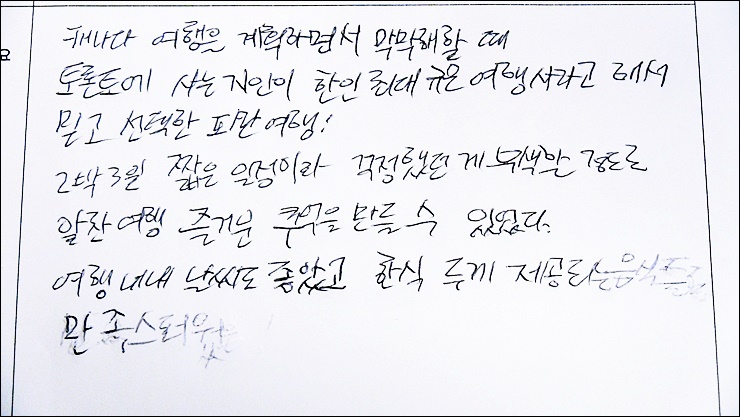 요
캐나다 여행을 계획하면서 막막해할 때
토론토에 사는 지인이 한인 최대 규모 여행사라고 해서
믿고 선택한 파란여행!
2박3일 짧은 일정이라 걱정했던 게 무색할 정도로
알찬여행 즐거운 추억을 만들 수 있었다.
여행 내내 날씨도 좋았고 한식 두끼 제공되는 음식도
만족스러웠